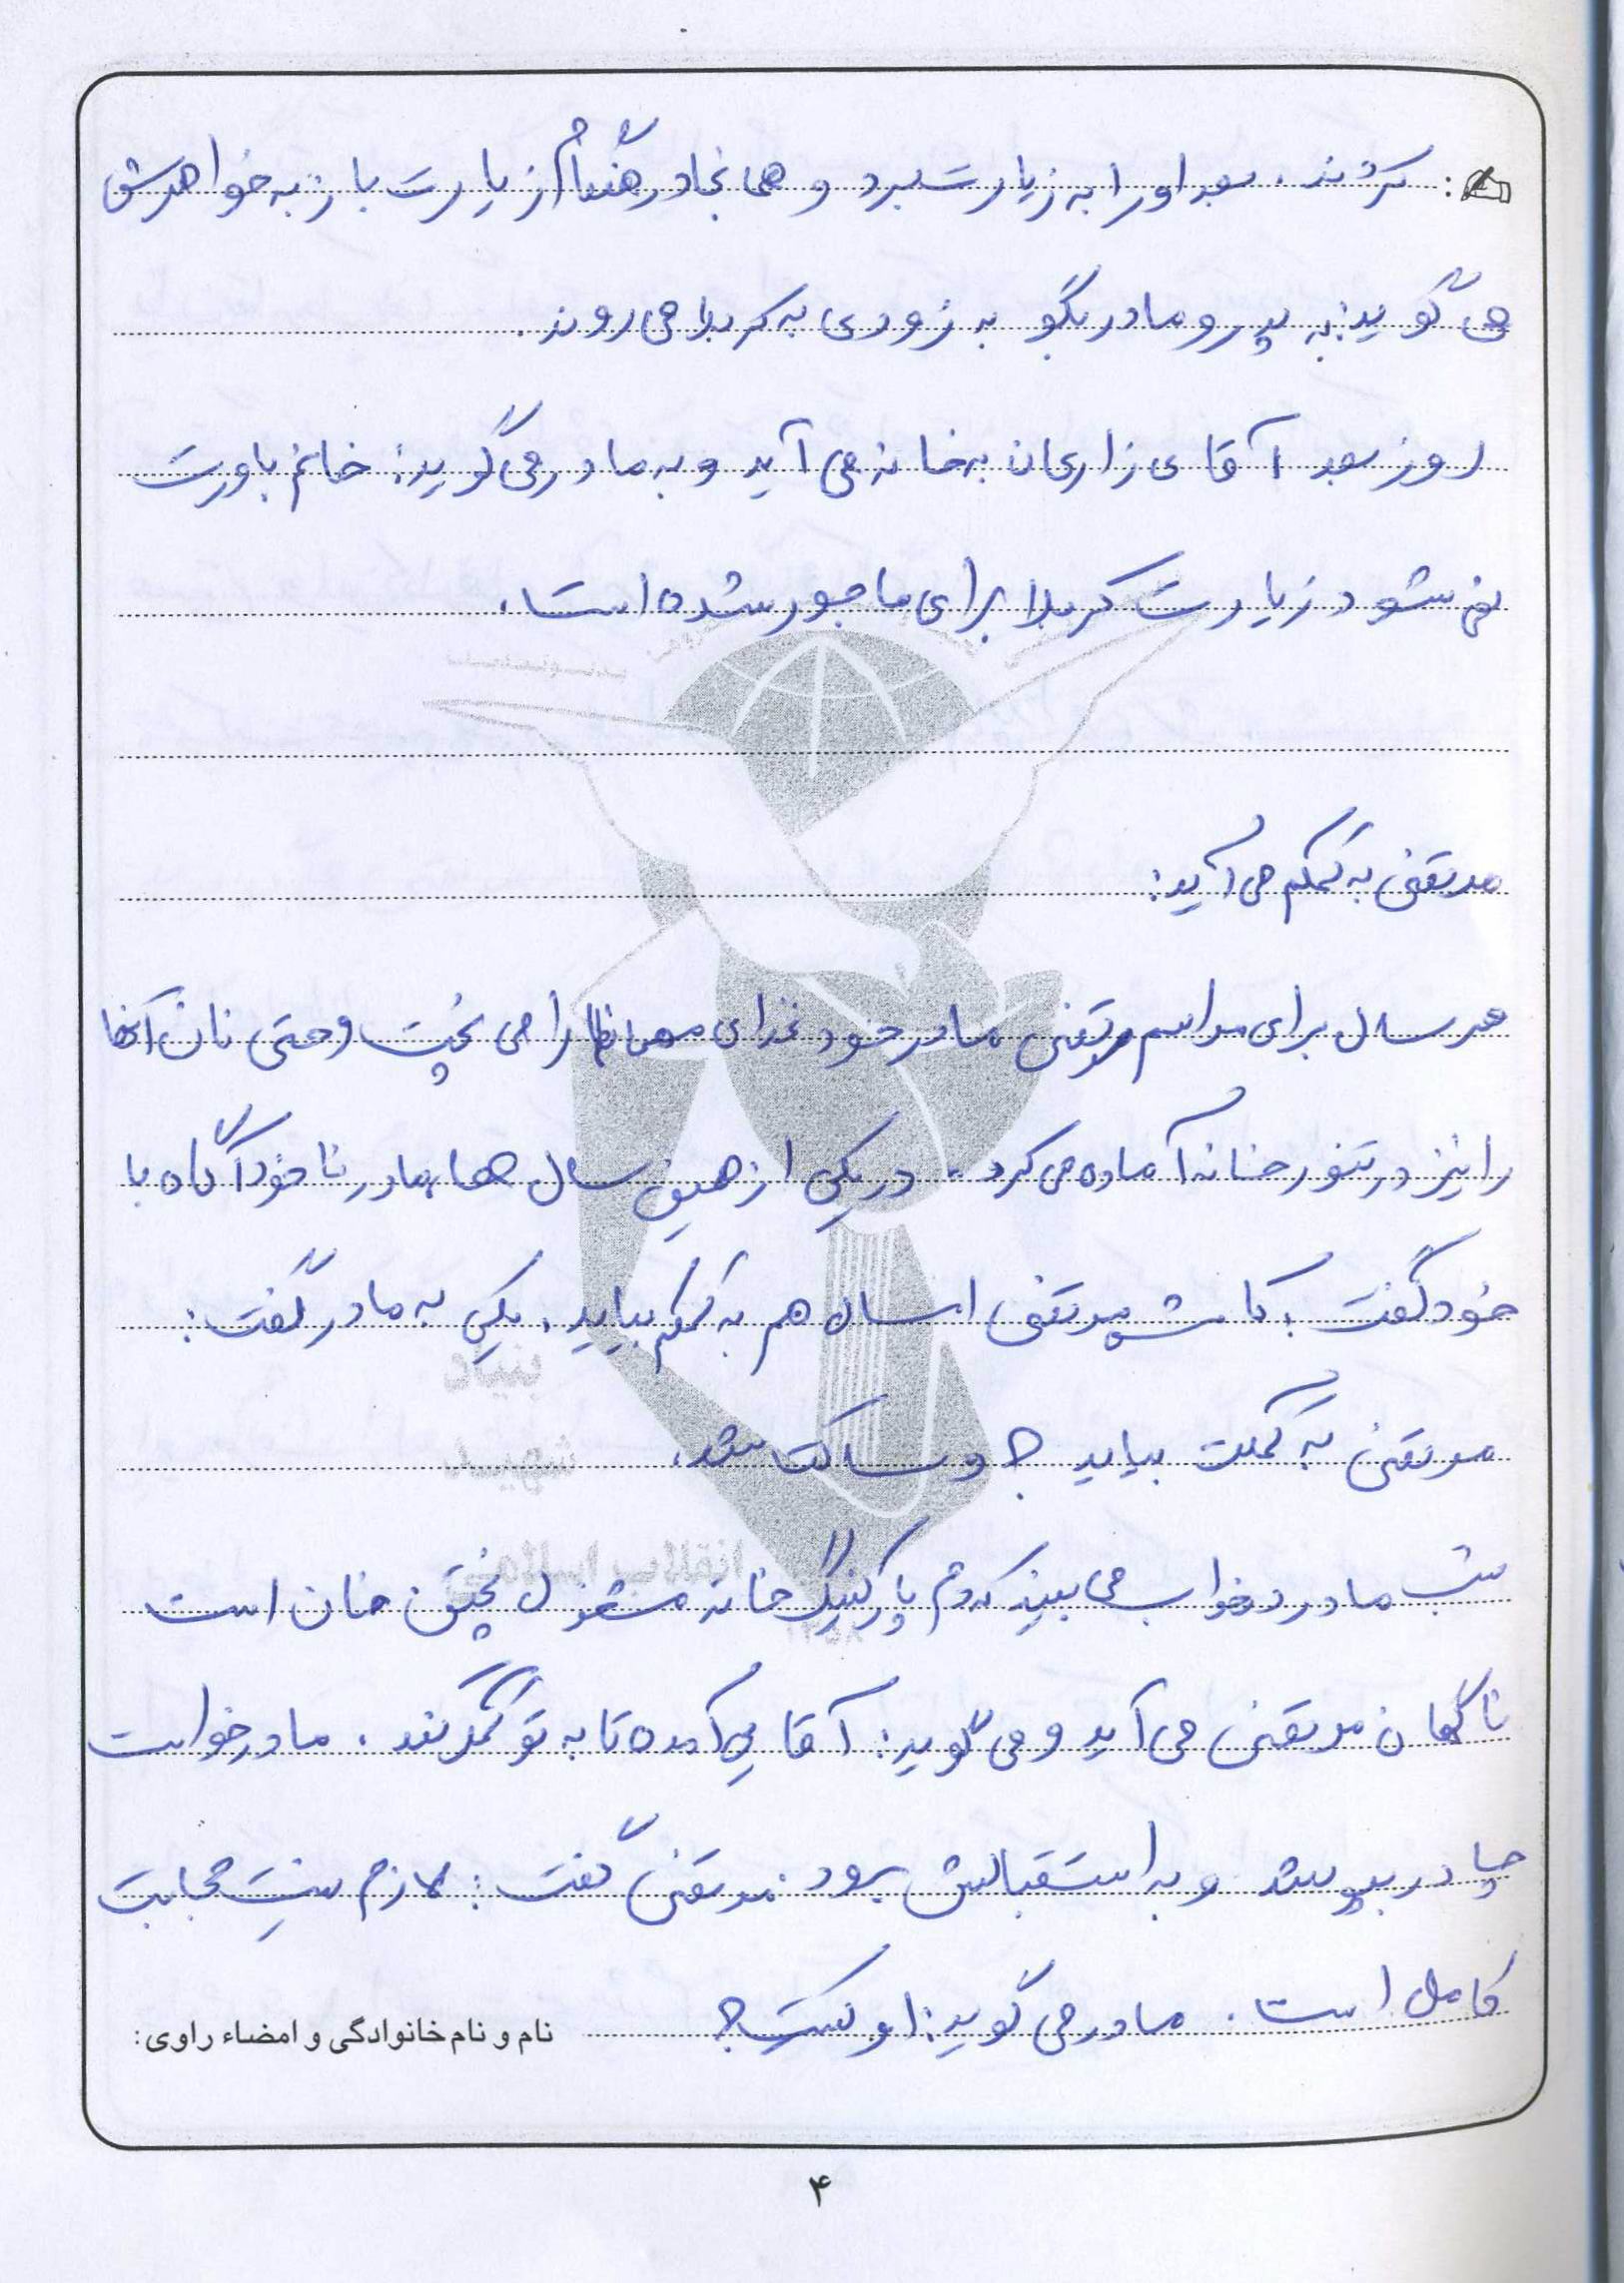 کردند. بعد او را به زیارت برد و همانجا در هنگام زیارت باز به خواهرش
می گوید: به پدر و مادر بگو به زودی به کربلا می روند.
روز بعد آقای زارعان به خانه می آید و به مادر می گوید: خانم باورت
نمی شود زیارت کربلا برای ما جور شده است.
مرتضی به کمکم می آید:
هر سال برای مراسم مرتضی مادر خود غذای مهمانها را می پخت و حتی نان آنها
را نیز در تنور خانه آماده می کرد. در یکی از همین سال ها، مادر ناخودآگاه با
خود گفت: کاش مرتضی امسال هم به کمکم بیاید. یکی به مادر گفت:
مرتضی به کمکت بیاید؟ و ساکت شد.
شب مادر در خواب می بیند که دم پارکینگ خانه مشغول پختن نان است
ناگهان مرتضی می آید و می گوید: آقایی آمده تا به تو کمک کند. مادر خواست
چادر بپوشد و به استقبالش برود. مرتضی گفت: لازم نیست حجابت
کامل است. مادر می گوید: او کیست؟
نام و نام خانوادگی و امضاء راوی:
بنیاد
شهید
انقلاب اسلامی
۴